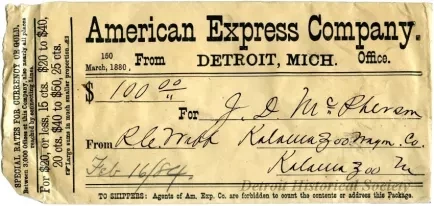 SPECIAL RATES FOR CURRENCY OR GOLD,
Between 3,000 Offices of this Company, also nearly all places
reached by connecting Lines.
For $20, or less, 15 cts. $20 to $40,
20 cts. $40 to $50, 25 cts.
Large sums in much smaller proportion.
American Express Company.
150
March, 1880.
From DETROIT, MICH. Office.
$ 100 00
For J. D. McPherson
From R. C. Webb Kalamazoo Wagn. Co.
Feb 16/84. Kalamazoo M
Detroit Historical Society
TO SHIPPERS: Agents of Am. Exp. Co. are forbidden to count the contents or address this Package.